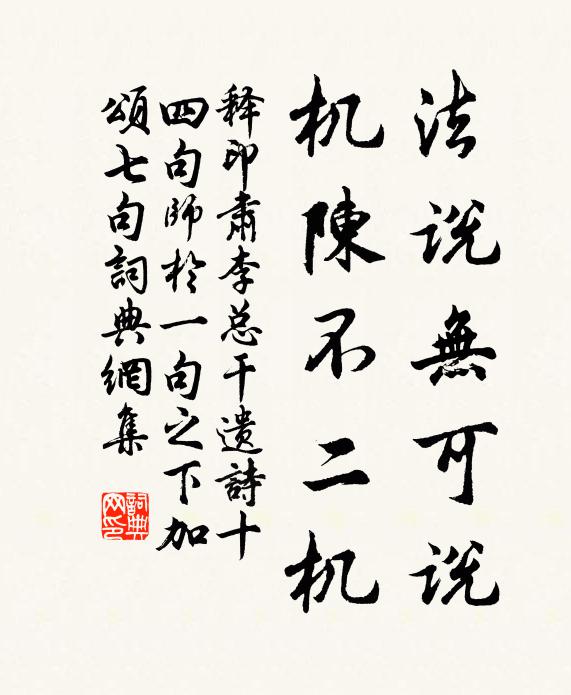 法说無可说
机陳不二机
释印肃李总干遗詩十
四句師於一句之下加
頌七句詞典網集
詞典
网印